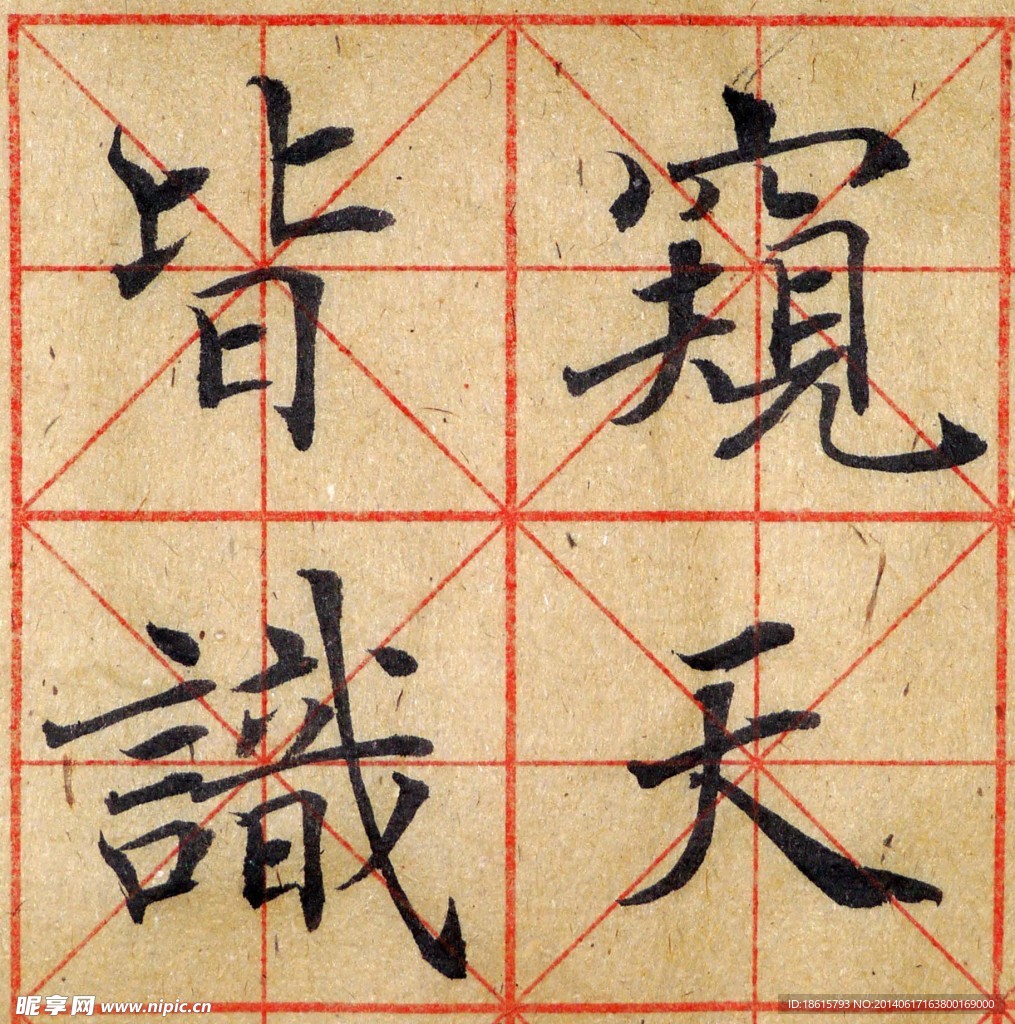 窺天
皆識
昵享网 www.nipic.cn
ID:18615793 NO:20140617163800169000